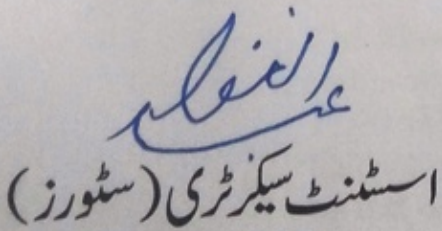 اسسٹنٹ سیکرٹری (سٹورز)